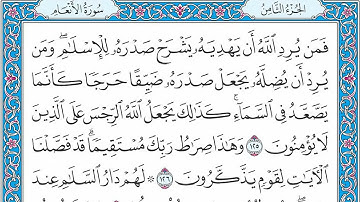 الجُزْءُ الثَّامِنُ
سُورَةُ الأَنْعَامِ
فَمَن يُرِدِ ٱللَّهُ أَن يَهْدِيَهُۥ يَشْرَحْ صَدْرَهُۥ لِلْإِسْلَٰمِۖ وَمَن
يُرِدْ أَن يُضِلَّهُۥ يَجْعَلْ صَدْرَهُۥ ضَيِّقًا حَرَجًا كَأَنَّمَا
يَصَّعَّدُ فِى ٱلسَّمَآءِۚ كَذَٰلِكَ يَجْعَلُ ٱللَّهُ ٱلرِّجْسَ عَلَى ٱلَّذِينَ
لَا يُؤْمِنُونَ ١٢٥ وَهَٰذَا صِرَٰطُ رَبِّكَ مُسْتَقِيمًاۗ قَدْ فَصَّلْنَا
ٱلْءَايَٰتِ لِقَوْمٍ يَذَّكَّرُونَ ١٢٦ ۞ لَهُمْ دَارُ ٱلسَّلَٰمِ عِندَ